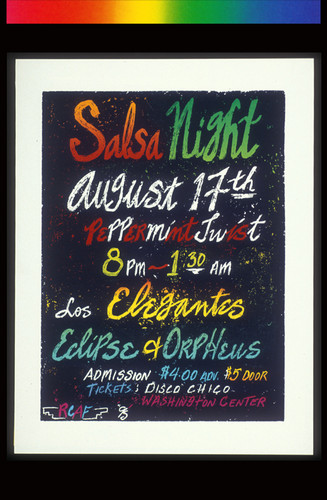 Salsa Night
August 17th
Peppermint Twist
8 PM - 1 30 AM
Los Elegantes
Eclipse & Orpheus
ADMISSION $4.00 ADV. $5 DOOR
TICKETS: DISCO CHICO
WASHINGTON CENTER
RCAF